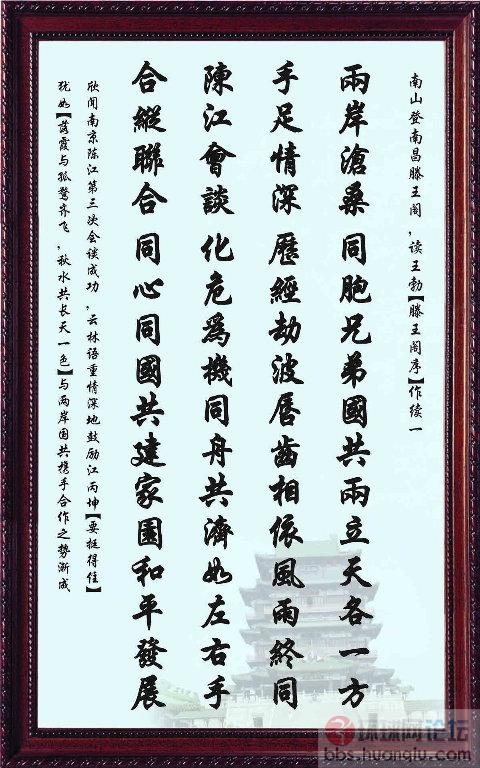 南山登南昌滕王阁，读王勃【滕王阁序】作续一
兩岸滄桑 同胞兄弟國共兩立天各一方
手足情深 歷經劫波唇齒相依風雨終同
陳江會談 化危爲機同舟共濟如左右手
合縱聯合 同心同國共建家園和平發展
欣闻南京陈江第三次会谈成功，云林语重情深地鼓励江丙坤【要挺得住】
犹如【落霞与孤鹜齐飞，秋水共长天一色】与两岸国共携手合作之势渐成
环球网论坛
bbs.huanqiu.com